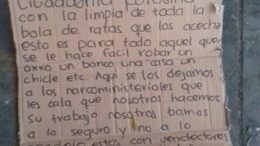 Ciudadania Potosina
con la limpia de toda la
bola de ratas que los acecha
esto es para todo aquel que
se le hace facil robar un
oxxo un banco una
chicle etc. Aqui se los dejamos
a los narcoministeriales que
les cala que nosotros hacemos
su trabajo nosotros bamos
a lo seguro y no a lo
estos con